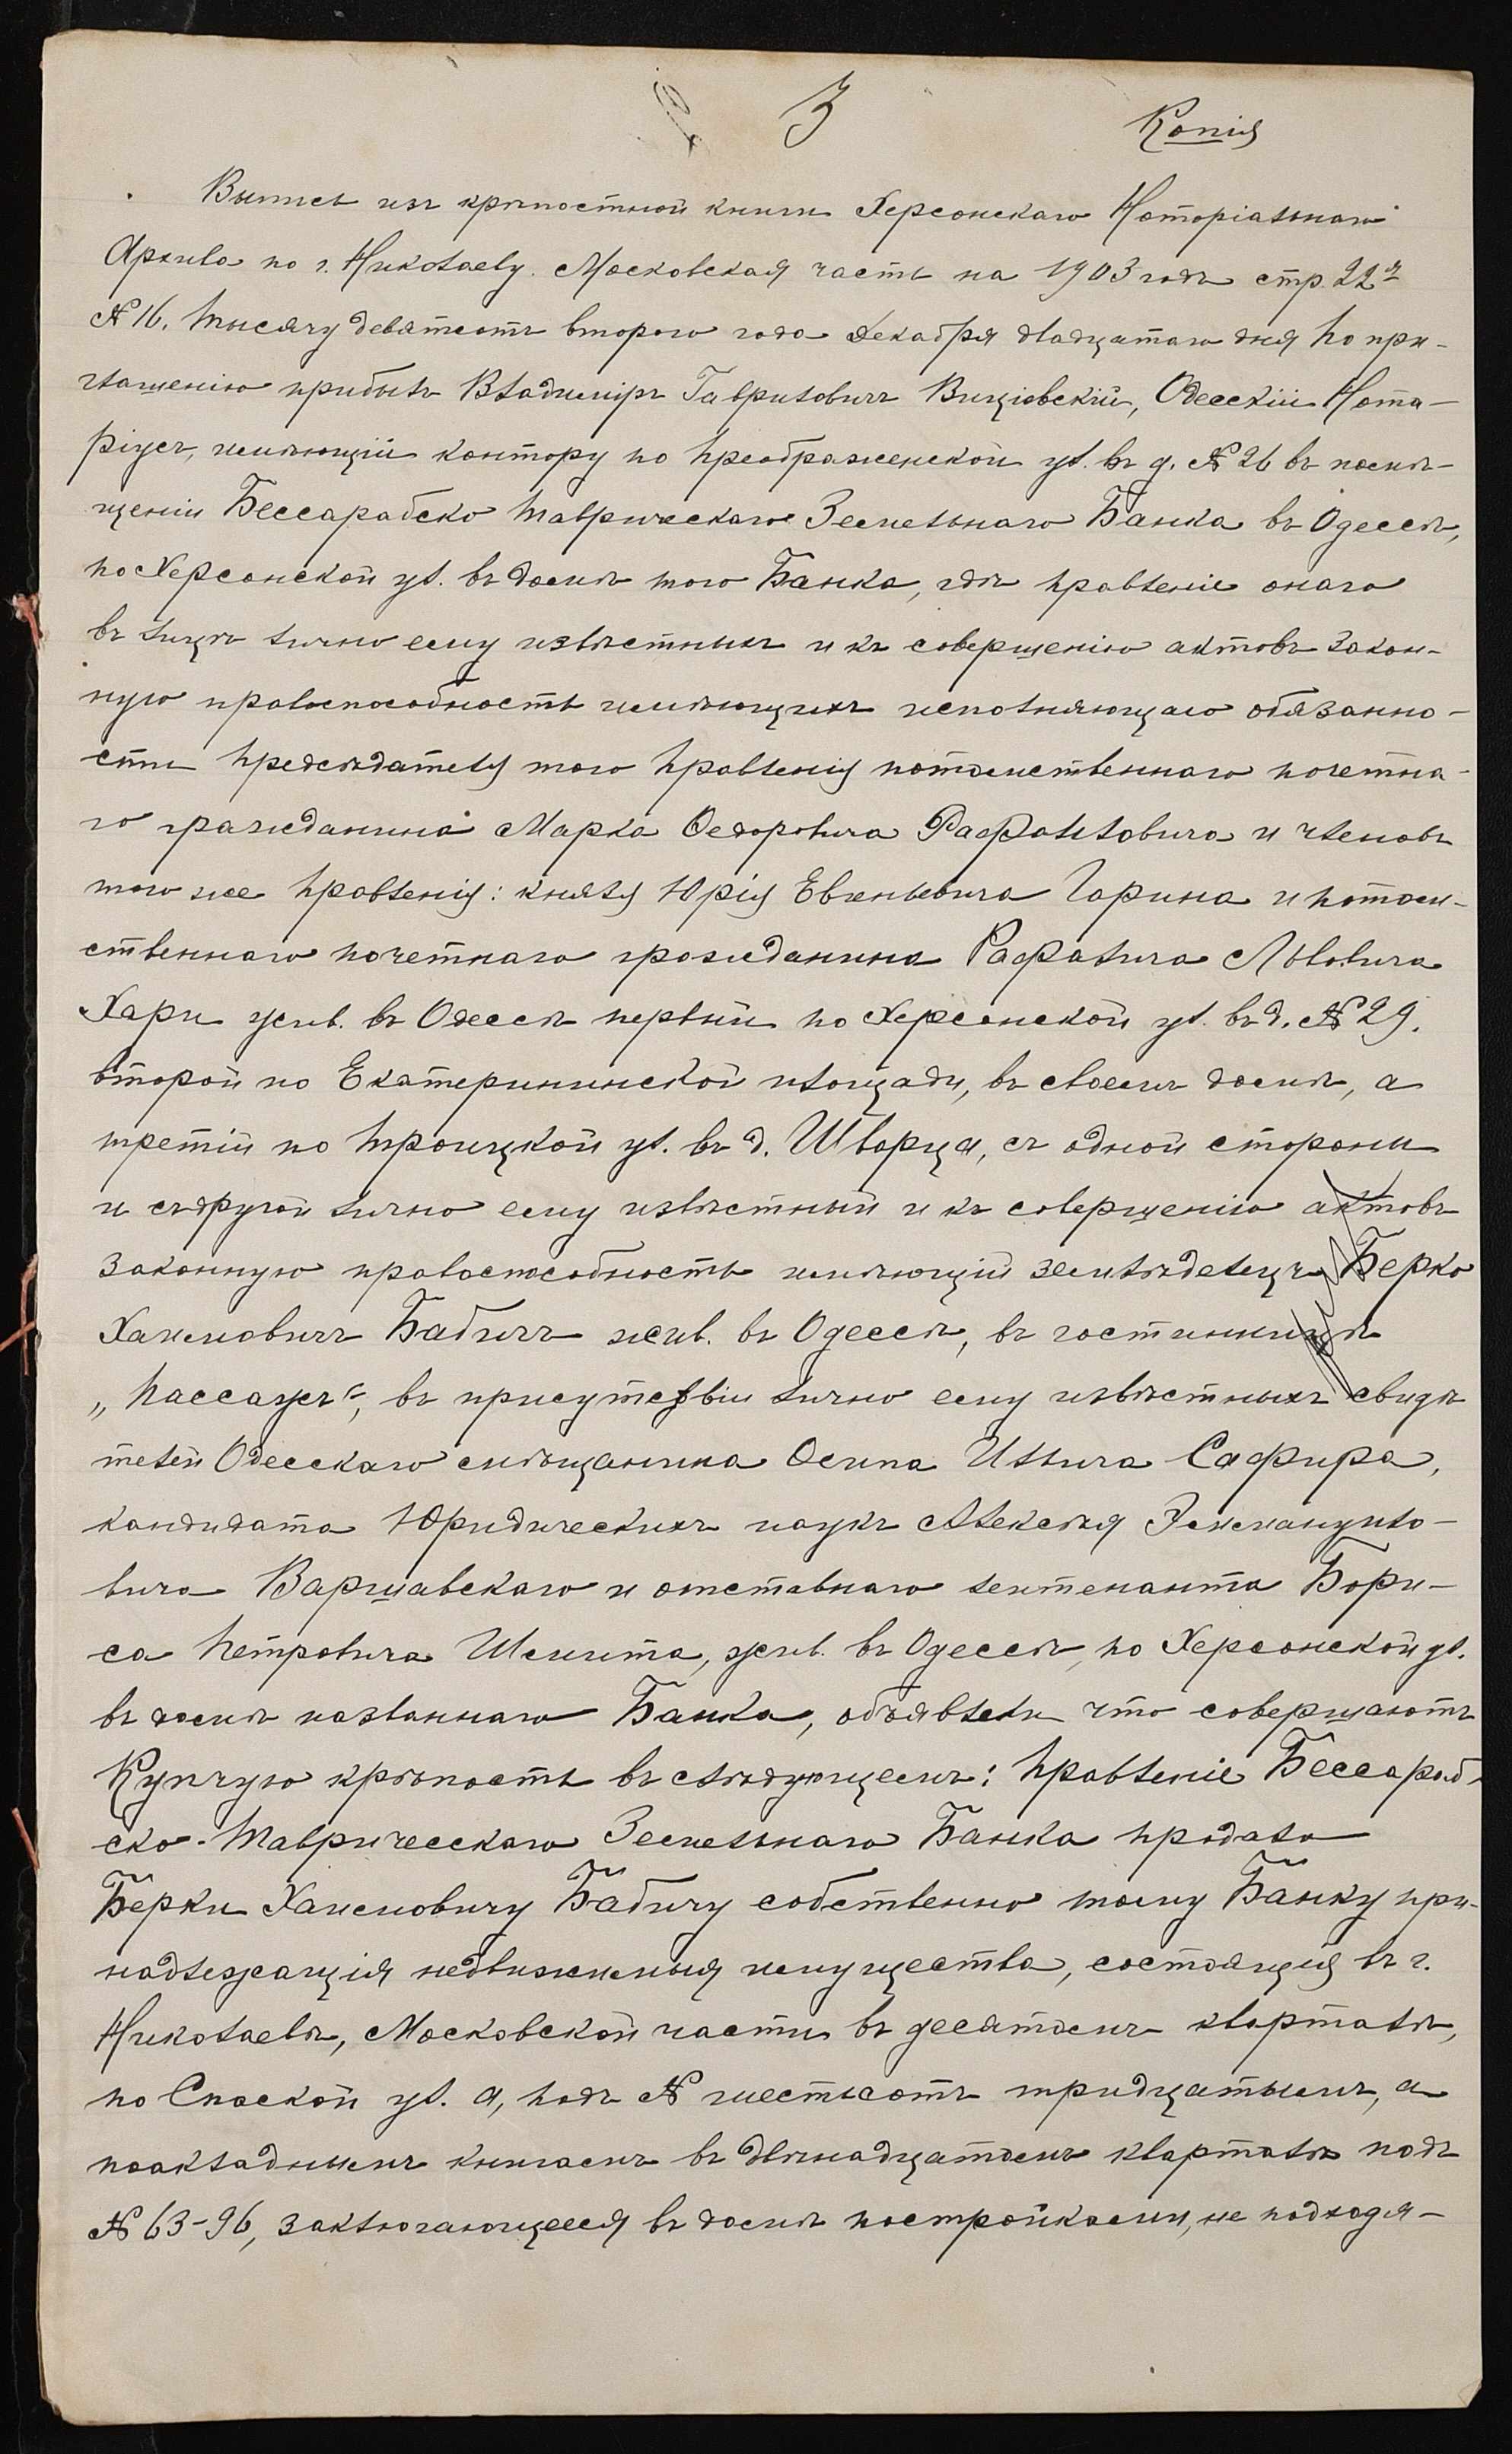 3
Копія
Выпись изъ крѣпостной книги Херсонскаго Нотаріальнаго
Архива по г. Николаеву. Московская часть на 1903 годъ стр. 22я
№ 16. Тысячу девятсотъ второго года Декабря двадцатаго дня по при-
глашенію прибылъ Владиміръ Гавриловичъ Вицiовскій, Одесскій Нота-
ріусъ, имѣющій контору по Преображенской ул. въ д. № 26 въ помѣ-
щеніи Бессарабско Таврическаго Земельнаго Банка въ Одессѣ,
по Херсонской ул. въ домѣ того Банка, гдѣ Правленіе онаго
въ лицѣ лично ему извѣстныхъ и къ совершенію актовъ закон-
ную правоспособность имѣющихъ исполняющаго обязанно-
сти Предсѣдателя того Правленія потомственнаго почетна-
го гражданина Марка Федоровича Рафаловича и членовъ
того же Правленія: князя Юрія Евгеньевича Гарина и потом-
ственнаго почетнаго гражданина Рафаила Львовича
Хари жив. въ Одессѣ первый по Херсонской ул. въ д. № 29.
второй по Екатерининской площади, въ своемъ домѣ, а
третій по Троицкой ул. въ д. Шварца, съ одной стороны
и съ другой лично ему извѣстный и къ совершенію актовъ
законную правоспособность имѣющій землѣделецъ Берко
Хаимовичъ Бабичъ жив. въ Одессѣ, въ гостинницѣ
„Пассажъ“, въ присутсвіи лично ему извѣстныхъ свидѣ
телей Одесскаго мѣщанина Осипа Ильича Сафира,
кандидата Юридическихъ наукъ Алексѣя Эммануило-
вича Варшавскаго и отставнаго лейтенанта Бори-
са Петровича Шмита, жив. въ Одессѣ, по Херсонской ул.
въ домѣ названнаго Банка, объявляли что совершаютъ
Купчую крѣпость въ слѣдующемъ: Правленіе Бессараб-
ско-Таврическаго Земельнаго Банка продало
Берки Хаимовичу Бабичу собственно тому Банку при-
надлежащія недвижимыя имущества, состоящія въ г.
Николаевѣ, Московской части въ десятомъ кварталѣ,
по Спаской ул. а, подъ № шестьсотъ тридцатымъ, а
поокладнымъ книгамъ въ двѣнадцатомъ кварталѣ подъ
№ 63-96, заключающееся въ домѣ постройками, не подходя-